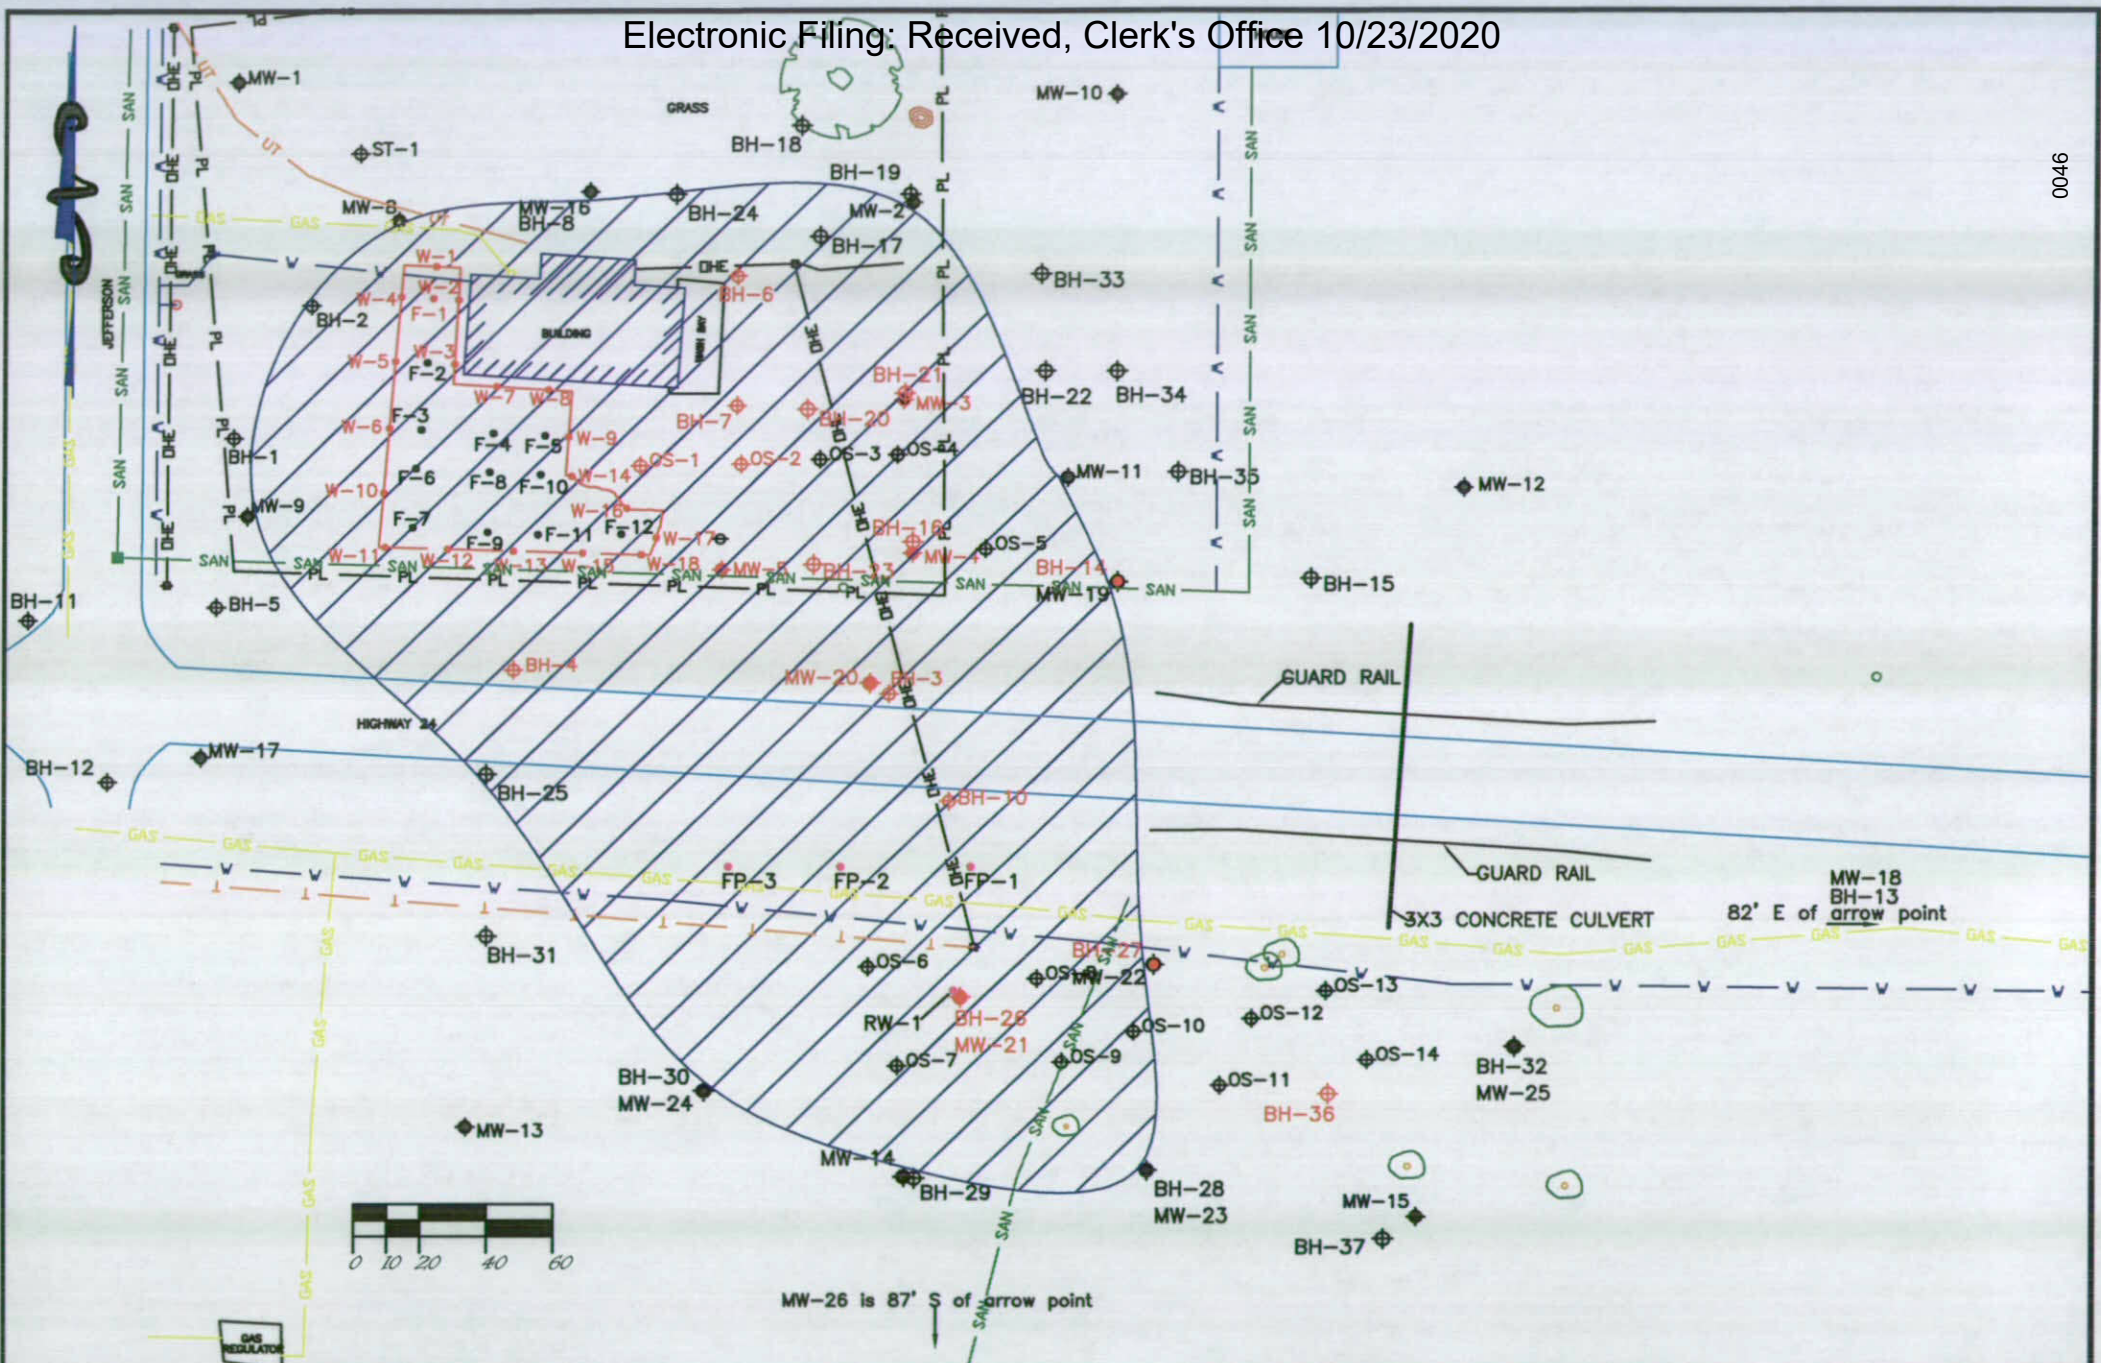 Electronic Filing: Received, Clerk's Office 10/23/2020
0046
MW-1
GRASS
MW-10
BH-18
ST-1
BH-19
MW-8
MW-16
BH-8
BH-24
MW-2
BH-17
JEFFERSON
W-1
W-2
W-4
F-1
BH-2
BUILDING
BH-6
BH-33
W-3
W-5
F-2
W-7
W-8
BH-21
MW-3
BH-22
BH-34
BH-7
BH-20
F-3
W-6
F-4
F-5
W-9
BH-1
OS-1
OS-2
OS-3
OS-4
MW-11
BH-35
MW-12
F-6
F-8
F-10
W-14
W-10
MW-9
W-16
F-7
F-9
F-11
F-12
W-17
BH-16
MW-4
OS-5
W-11
W-12
W-13
W-15
W-18
MW-5
BH-23
BH-14
MW-19
BH-15
BH-11
BH-5
BH-4
MW-20
BH-3
GUARD RAIL
HIGHWAY 24
MW-17
BH-12
BH-25
BH-10
FP-3
FP-2
FP-1
GUARD RAIL
MW-18
BH-13
82' E of arrow point
3X3 CONCRETE CULVERT
BH-31
OS-6
OS-8
BH-27
MW-22
OS-13
RW-1
BH-26
MW-21
OS-10
OS-12
OS-7
OS-9
OS-14
BH-32
MW-25
BH-30
MW-24
OS-11
BH-36
MW-13
MW-14
BH-29
BH-28
MW-23
MW-15
BH-37
0 10 20 40 60
MW-26 is 87' S of arrow point
GAS
REGULATOR
PL
OHE
SAN
GAS
UT
W